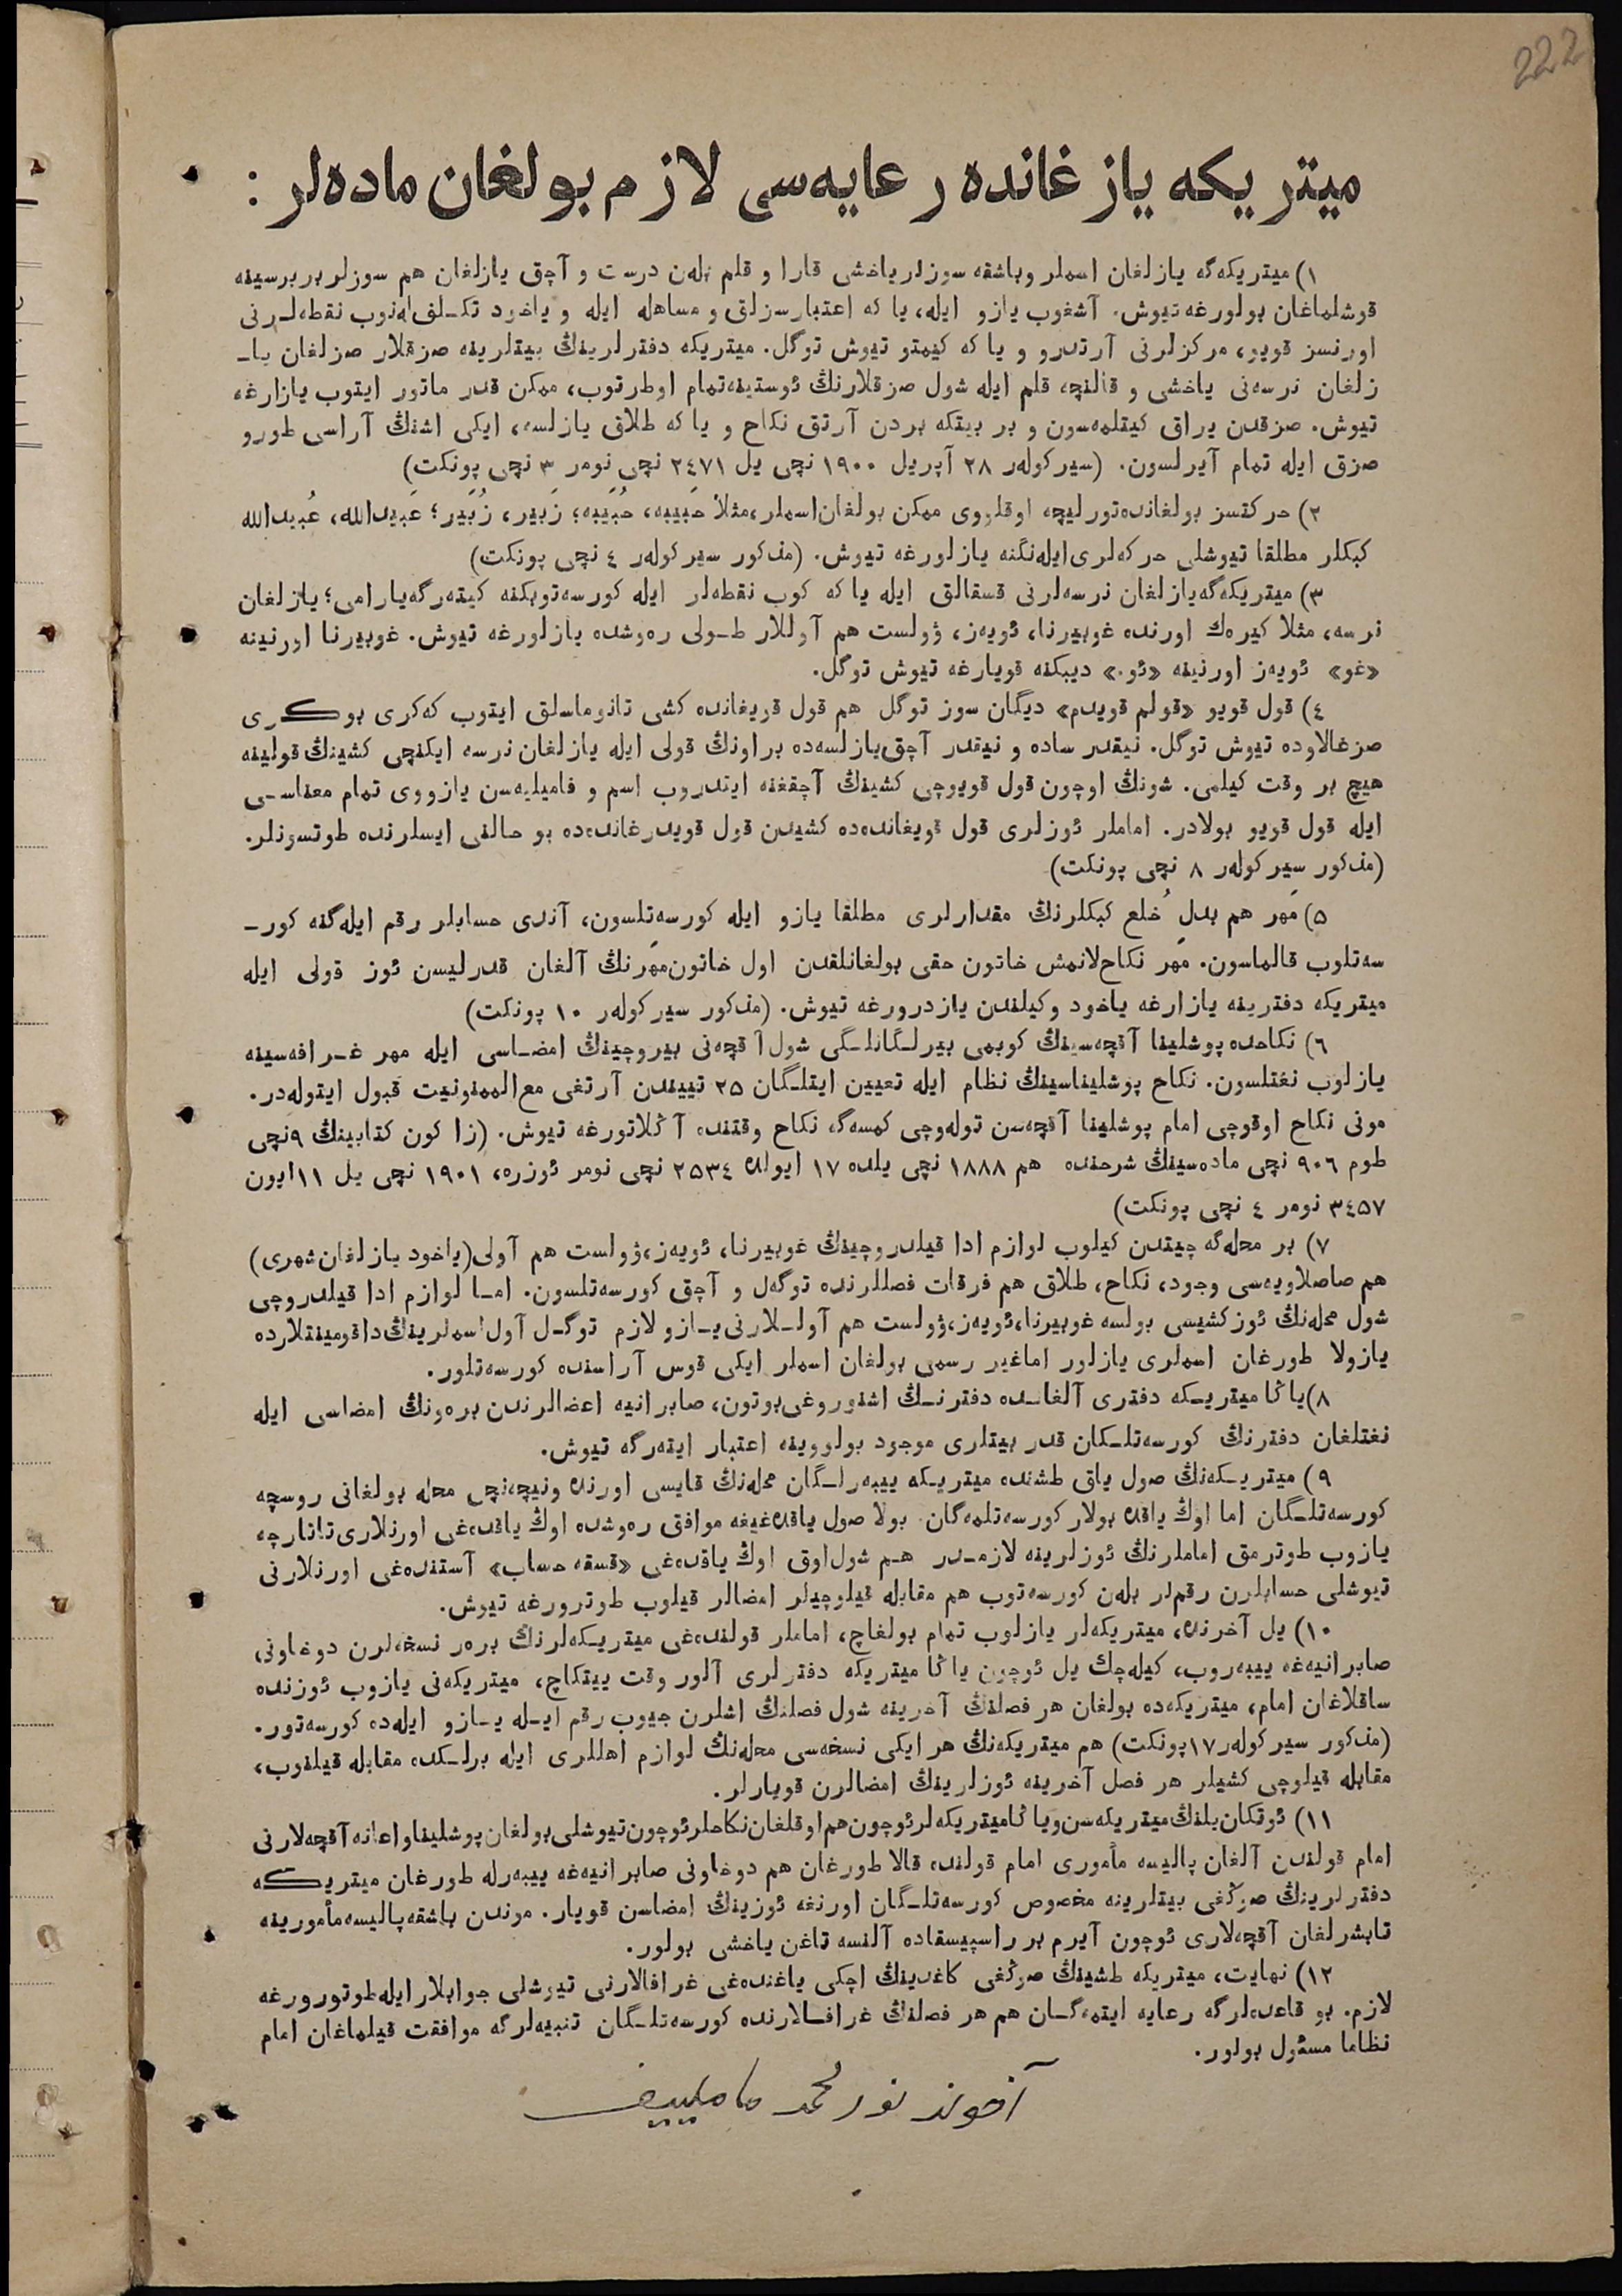 222
میتریكه یازغانده رعایه‌سی لازم بولغان ماده‌لر :
۱) میتریكه‌گه یازلغان اسملر وباشقه سوزلر یاخشی قارا و قلم بله‌ن درست و آچق یازلغان هم سوزلر بربرسینه
قوشلماغان بولورغه تیوش. آشغوب یازو ایله، یا كه اعتبارسزلق و مساهله ایله و یاخود تكلف له‌نوب نقطه‌لرنی
اورنسز قویو، مركزلرنی آرتدرو و یا كه كیمتو تیوش توگل. میتریكه دفترلرینڭ بیتلرینه صزقلار صزلغان یا-
زلغان نرسه‌نی یاخشی و قالنچه قلم ایله شول صزقلارنڭ ئوستینه تمام اوطرتوب، ممكن قدر ماتور ایتوب یازارغه
تیوش. صزقدن یراق كیتلمه‌سون و بر بیتكه بردن آرتق نكاح و یا كه طلاق یازلسه، ایكی اشنڭ آراسی طورو
صزق ایله تمام آیرلسون. (سیركوله‌ر ۲۸ آپریل ۱۹۰۰ نچی یل ۲٤۷۱ نچی نومر ۳ نچی پونكت)
۲) حركتسز بولغانده تورلیچه اوقلووی ممكن بولغان اسملر، مثلا حَبیبه، حُبَیبه؛ زَبیر، زُبَیر؛ عَبیدالله، عُبیدالله
كبكلر مطلقا تیوشلی حركه‌لری ایله‌نگنه یازلورغه تیوش. (مذكور سیركوله‌ر ٤ نچی پونكت)
۳) میتریكه‌گه یازلغان نرسه‌لرنی قسقالق ایله یا كه كوب نقطه‌لر ایله كورسه‌توبكنه كیته‌رگه یارامی؛ یازلغان
نرسه، مثلا كیره‌ك اورنده غوبیرنا، ئویه‌ز، ۋولست هم آوللار طولی ره‌وشده یازلورغه تیوش. غوبیرنا اورنینه
«غو» ئویه‌ز اورنینه «ئو.» دیبكنه قویارغه تیوش توگل.
٤) قول قویو «قولم قویدم» دیگان سوز توگل هم قول قویغانده كشی تانوماسلق ایتوب كه‌كری بوكری
صزغالاوده تیوش توگل. نیقدر ساده و نیقدر آچق یازلسه‌ده براونڭ قولی ایله یازلغان نرسه ایكنچی كشینڭ قولینه
هیچ بر وقت كیلمی. شونڭ اوچون قول قویوچی كشینڭ آچقغنه ایتدروب اسم و فامیلیه‌سن یازووی تمام معناسی
ایله قول قویو بولادر. اماملر ئوزلری قول قویغانده‌ده كشیدن قول قویدرغانده‌ده بو حالنی ایسلرنده طوتسونلر.
(مذكور سیركوله‌ر ۸ نچی پونكت)
۵) مَهر هم بدلِ خُلع كبكلرنڭ مقدارلری مطلقا یازو ایله كورسه‌تلسون، آندی حسابلر رقم ایله‌گنه كور-
سه‌تلوب قالماسون. مَهر نكاح‌لانمش خاتون حقی بولغانلقدن اول خاتون مَهرنڭ آلغان قدرلیسن ئوز قولی ایله
میتریكه دفترینه یازارغه یاخود وكیلندن یازدرورغه تیوش. (مذكور سیركوله‌ر ۱۰ پونكت)
٦) نكاحده پوشلینا آقچه‌سینڭ كوبمی بیرلگانلگی شول آقچه‌نی بیروچینڭ امضاسی ایله مهر غرافه‌سینه
یازلوب نغتلسون. نكاح پوشلیناسینڭ نظام ایله تعیین ایتلگان ۲۵ تییندن آرتغی مع‌الممنونیت قبول ایتوله‌در.
مونی نكاح اوقوچی امام پوشلینا آقچه‌سن توله‌وچی كمسه‌گه نكاح وقتنده آڭلاتورغه تیوش. (زاكون كتابینڭ ۹نچی
طوم ۹۰٦ نچی ماده‌سینڭ شرحنده هم ۱۸۸۸ نچی یلده ۱۷ ایولده ۲۵۳٤ نچی نومر ئوزره، ۱۹۰۱ نچی یل ۱۱ ایون
۳٤۵۷ نومر ٤ نچی پونكت)
۷) بر محله‌گه چیتدن كیلوب لوازم ادا قیلدروچینڭ غوبیرنا، ئویه‌ز، ۋولست هم آولی(یاخود یازلغان شهری)
هم صاصلاویه‌سی وجود، نكاح، طلاق هم فرقات فصللرنده توگه‌ل و آچق كورسه‌تلسون. اما لوازم ادا قیلدروچی
شول محله‌نڭ ئوز كشیسی بولسه غوبیرنا، ئویه‌ز، ۋولست هم آوللارنی یازو لازم توگل آول اسملرینڭ داقومینتلارده
یازولا طورغان اسملری یازلور اماغیر رسمی بولغان اسملر ایكی قوس آراسنده كورسه‌تلور.
۸)یاڭا میتریكه دفتری آلغانده دفترنڭ اشنوروغی بوتون، صابرانیه اعضالرندن بره‌ونڭ امضاسی ایله
نغتلغان دفترنڭ كورسه‌تلگان قدر بیتلری موجود بولووینه اعتبار ایته‌رگه تیوش.
۹) میتریكه‌نڭ صول یاق طشنده میتریكه ییبه‌رلگان محله‌نڭ قایسی اورنده ونیچه‌نچی محله بولغانی روسچه
كورسه‌تلگان اما اوڭ یاقده بولار كورسه‌تلمه‌گان. بولا صول یاقده‌غیغه موافق ره‌وشده اوڭ یاقده‌غی اورنلاری تاتارچه
یازوب طوترمق اماملرنڭ ئوزلرینه لازمدر هم شول اوق اوڭ یاقده‌غی «قسقه حساب» آستنده‌غی اورنلارنی
تیوشلی حسابلرن رقملر بله‌ن كورسه‌توب هم مقابله قیلوچیلر امضالر قیلوب طوترورغه تیوش.
۱۰) یل آخرنده، میتریكه‌لر یازلوب تمام بولغاچ، اماملر قولنده‌غی میتریكه‌لرنڭ بره‌ر نسخه‌لرن دوخاونی
صابرانیه‌غه ییبه‌روب، كیله‌چك یل ئوچون یاڭا میتریكه دفترلری آلور وقت ییتكاچ، میتریكه‌نی یازوب ئوزنده
ساقلاغان امام، میتریكه‌ده بولغان هر فصلنڭ آخرینه شول فصلنڭ اشلرن جیوب رقم ایله یازو ایله‌ده كورسه‌تور.
(مذكور سیركوله‌ر ۱۷پونكت) هم میتریكه‌نڭ هر ایكی نسخه‌سی محله‌نڭ لوازم اهللری ایله برلكده مقابله قیلنوب،
مقابله قیلوچی كشیلر هر فصل آخرینه ئوزلرینڭ امضالرن قویارلر.
۱۱) ئوتكان یلنڭ میتریكه‌سن ویاڭا میتریكه‌لر ئوچون هم اوقلغان نكاحلر ئوچون تیوشلی بولغان پوشلینا واعانه آقچه‌لارنی
امام قولندن آلغان پالیسه مأموری امام قولنده قالا طورغان هم دوخاونی صابرانیه‌غه ییبه‌رله طورغان میتریكه
دفترلرینڭ صوڭغی بیتلرینه مخصوص كورسه‌تلگان اورنغه ئوزینڭ امضاسن قویار. موندن باشقه پالیسه مأمورینه
تابشرلغان آقچه‌لاری ئوچون آیرم بر راسپیسقاده آلنسه تاغن یاخشی بولور.
۱۲) نهایت، میتریكه طشینڭ صوڭغی كاغدینڭ اچكی یاغنده‌غی غرافالارنی تیوشلی جوابلار ایله طوتورورغه
لازم. بو قاعده‌لرگه رعایه ایتمه‌گان هم هر فصلنڭ غرافالارنده كورسه‌تلگان تنبیه‌لرگه موافقت قیلماغان امام
نظاما مسئول بولور.
آخوند نورمحمد ماملییف